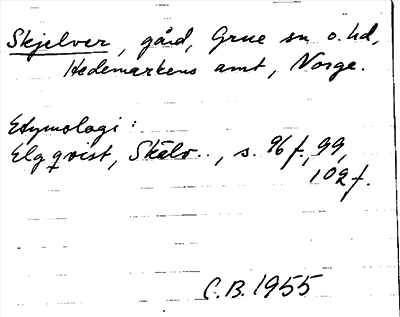 Skjelver, gård, Grue sn o. hd,
Hedemarkens amt, Norge.
Etymologi:
Elgqvist, Skälv.., s. 96 f., 99,
102 f.
C.B. 1955